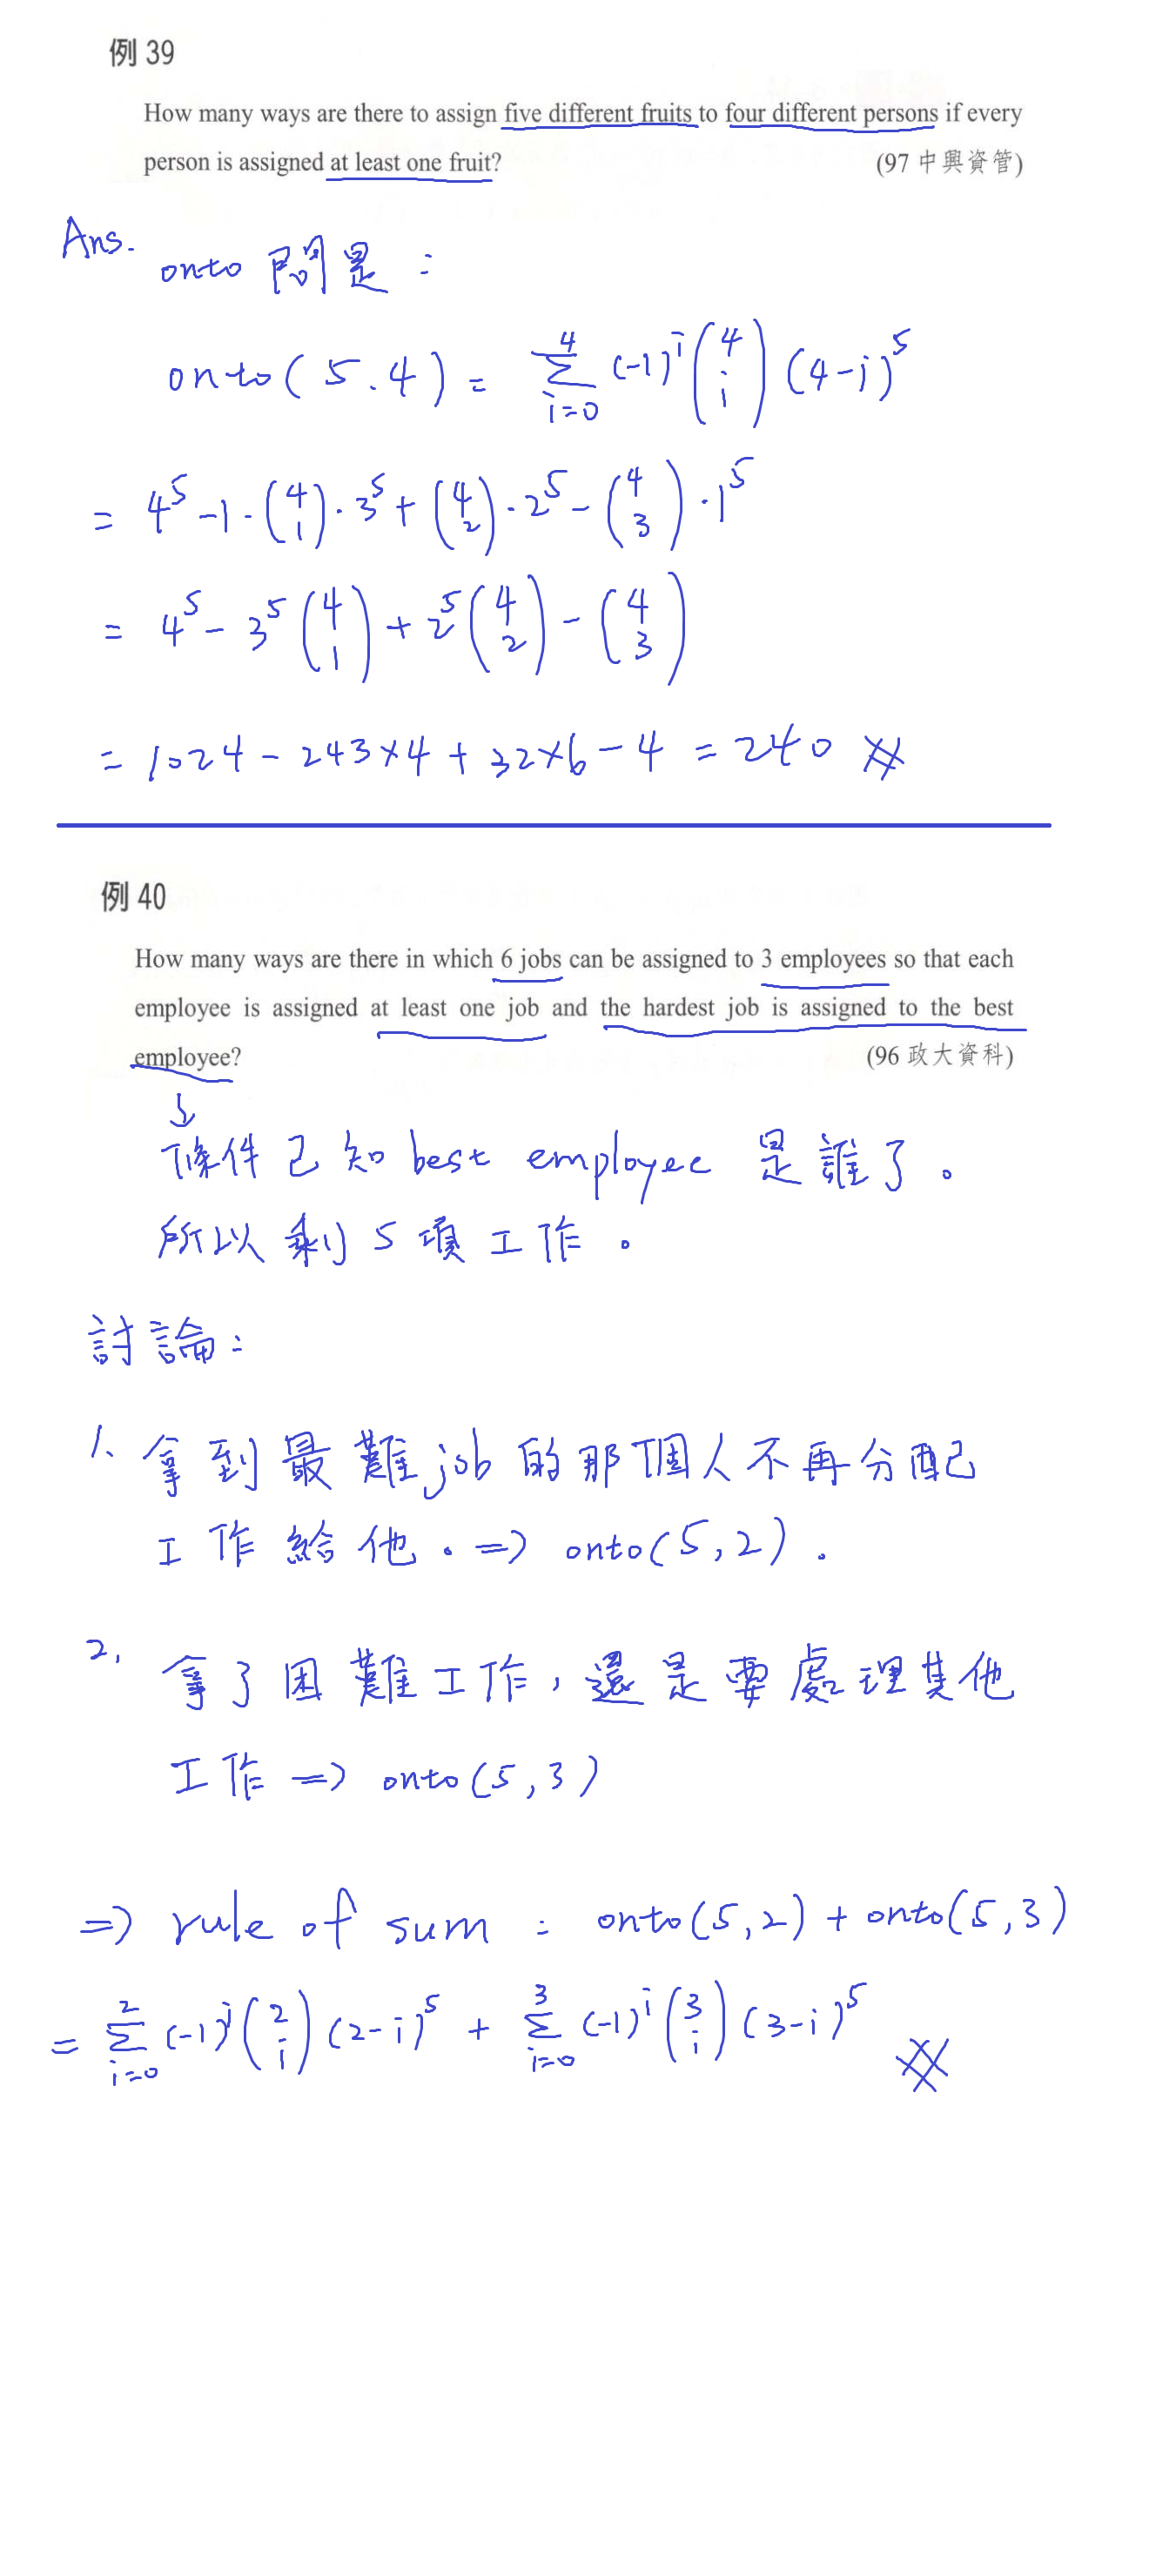 例 39
How many ways are there to assign five different fruits to four different persons if every
person is assigned at least one fruit? (97 中興資管)
Ans.
onto 問題：
onto(5.4) = Σ_{i=0}^{4} (-1)^i (4 i) (4-i)^5
= 4^5 -1·(4 1)·3^5 + (4 2)·2^5 - (4 3)·1^5
= 4^5 - 3^5 (4 1) + 2^5 (4 2) - (4 3)
= 1024 - 243×4 + 32×6 - 4 = 240
例 40
How many ways are there in which 6 jobs can be assigned to 3 employees so that each
employee is assigned at least one job and the hardest job is assigned to the best
employee? (96 政大資科)
↓
條件已知 best employee 是誰了。
所以剩5項工作。
討論：
1、拿到最難job的那個人不再分配
工作給他. ⇒ onto(5,2).
2, 拿了困難工作，還是要處理其他
工作 ⇒ onto(5,3)
⇒ rule of sum : onto(5,2) + onto(5,3)
= Σ_{i=0}^{2} (-1)^i (2 i) (2-i)^5 + Σ_{i=0}^{3} (-1)^i (3 i) (3-i)^5